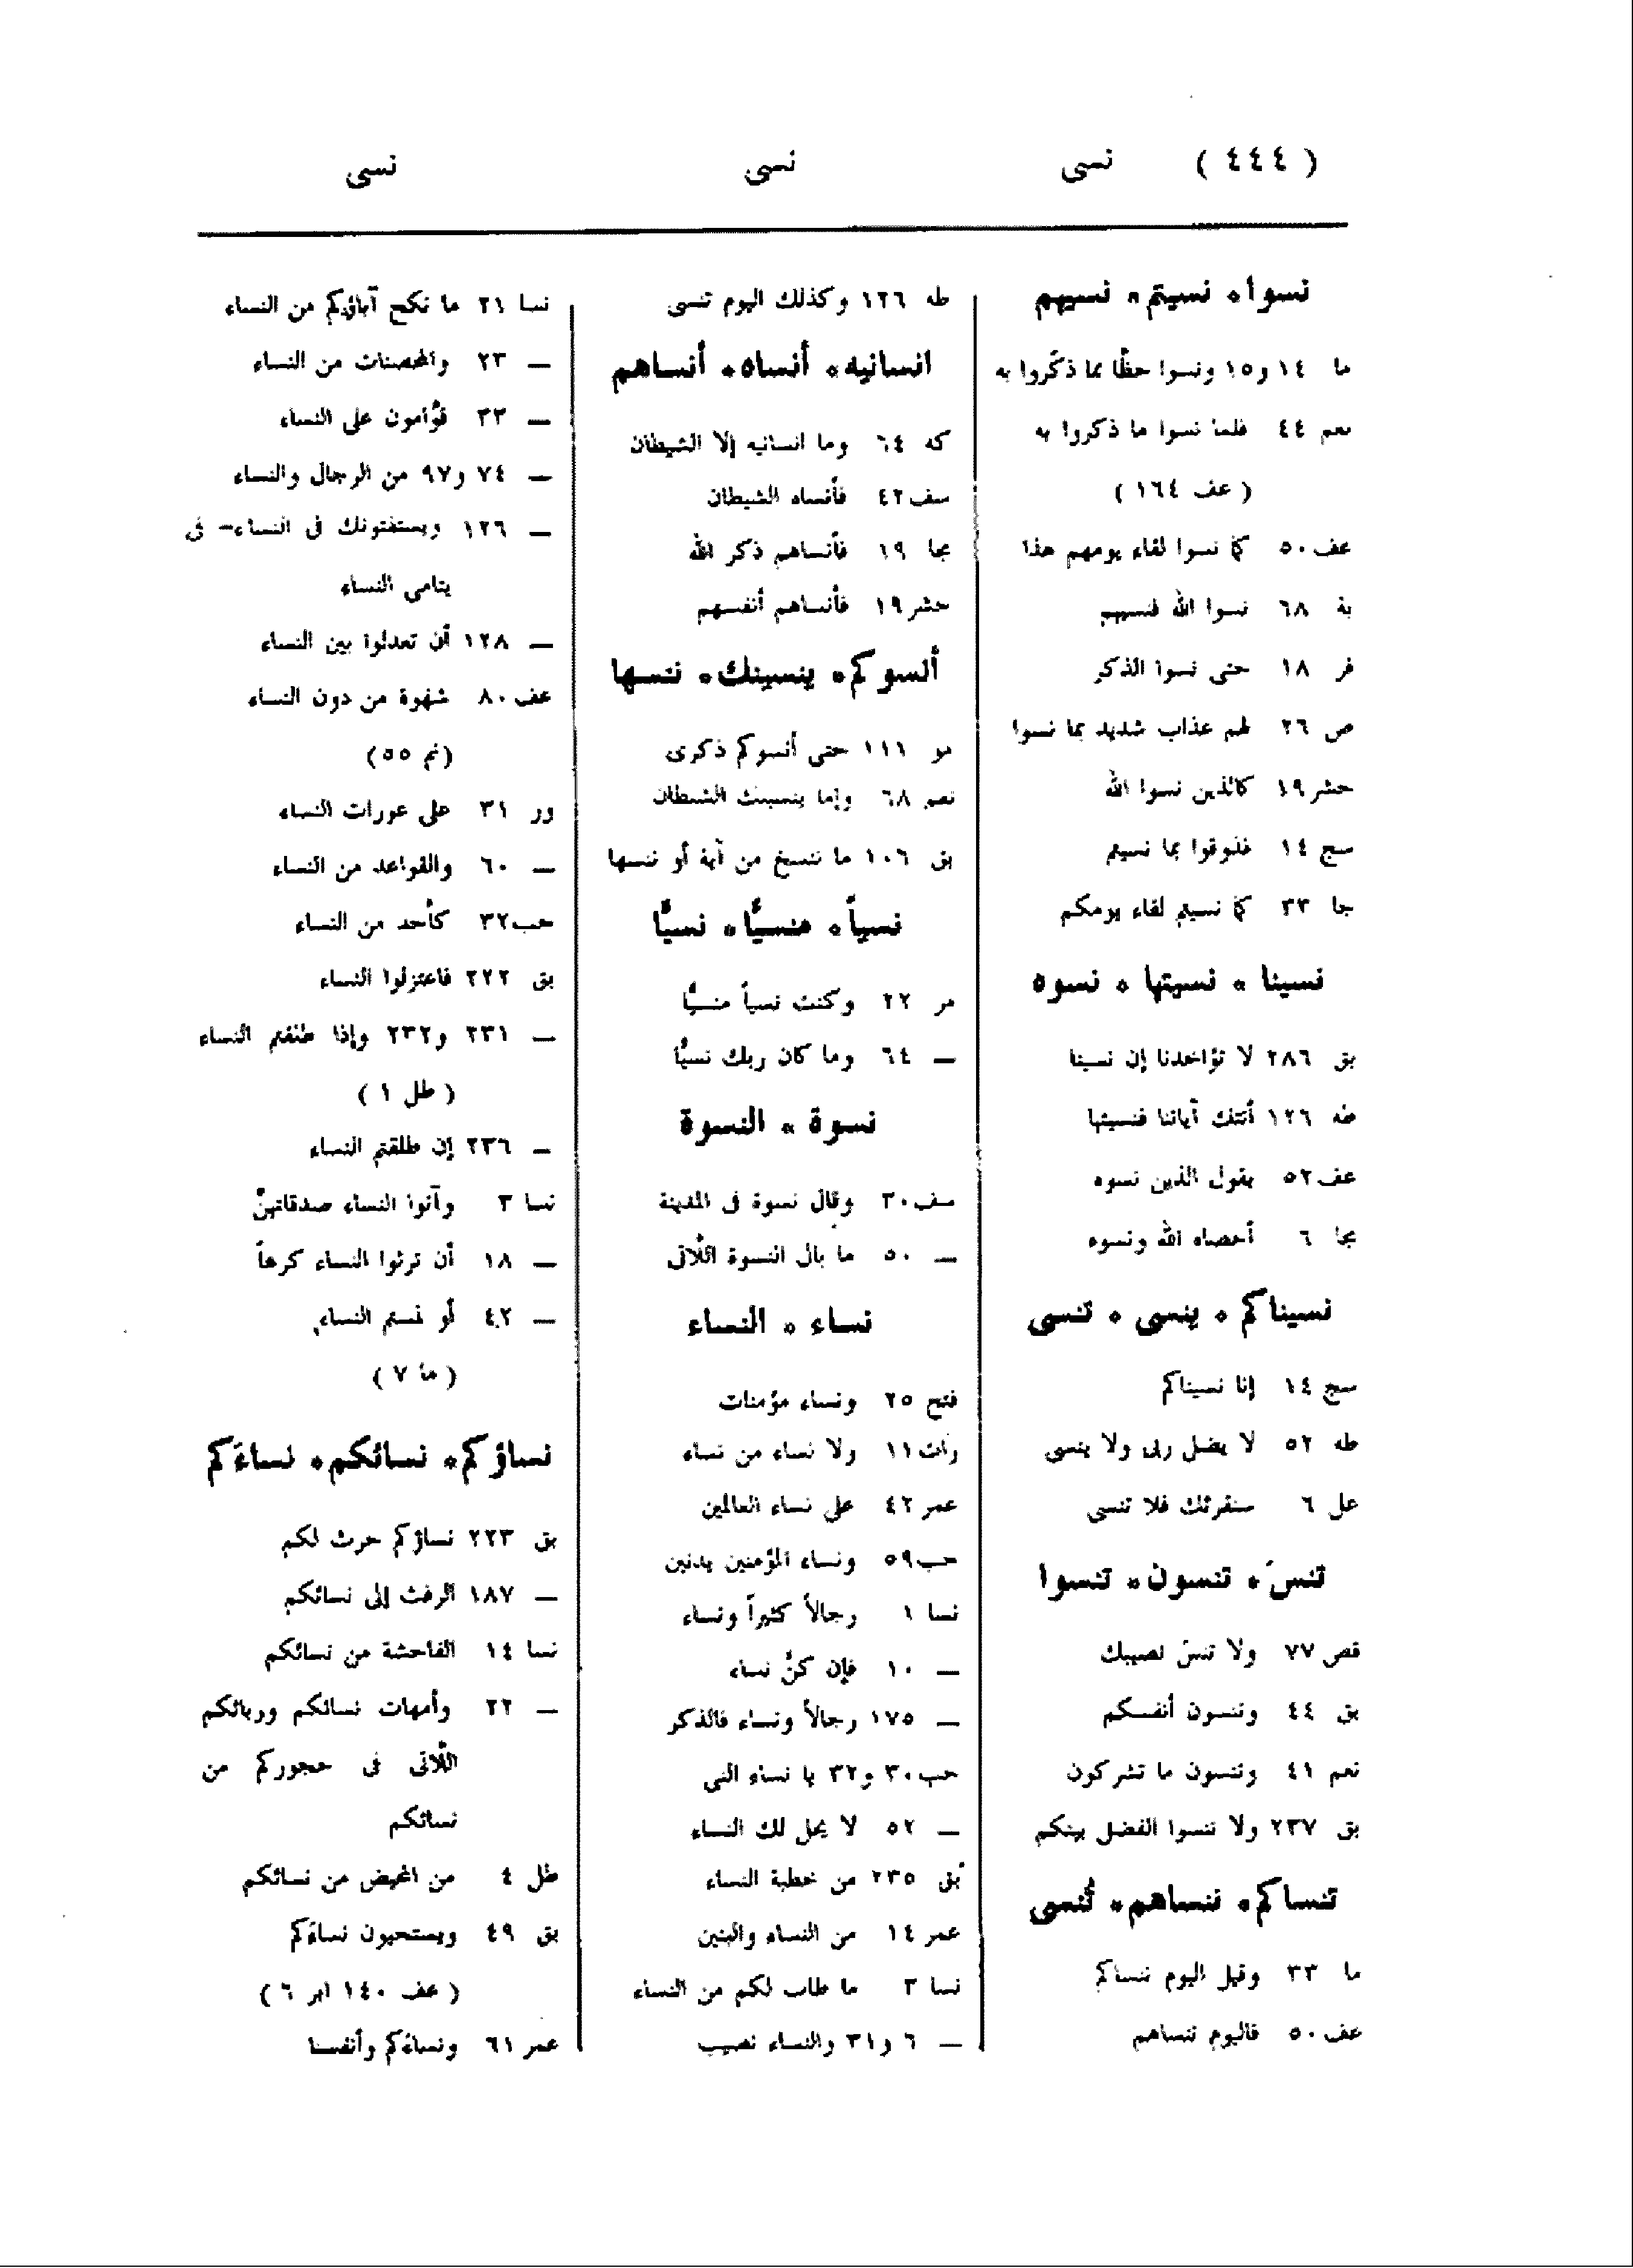 ( ٤٤٤ ) نسى نسى نسى
نسوا٭ نسيتم٭ نسيهم
ما ١٤ و١٥ ونسوا حظًّا مما ذكّروا به
نعم ٤٤ فلما نسوا ما ذكروا به
( عف ١٦٤ )
عف٥٠ كما نسوا لقاء يومهم هذا
بة ٦٨ نسوا الله فنسيهم
فر ١٨ حتى نسوا الذكر
ص ٢٦ لهم عذاب شديد بما نسوا
حشر١٩ كالذين نسوا الله
سج ١٤ فذوقوا بما نسيتم
جا ٣٣ كما نسيتم لقاء يومكم
نسينا ٭ نسيتها ٭ نسوه
بق ٢٨٦ لا تؤاخذنا إن نسينا
طه ١٢٦ أتتك آياتنا فنسيتها
عف٥٢ يقول الذين نسوه
مجا ٦ أحصاه الله ونسوه
نسيناكم ٭ ينسى ٭ تنسى
سج ١٤ إنا نسيناكم
طه ٥٢ لا يضل ربى ولا ينسى
عل ٦ سنقرئك فلا تنسى
تنسَ٭ تنسون٭ تنسوا
قص ٧٧ ولا تنسَ نصيبك
بق ٤٤ وتنسون أنفسكم
نعم ٤١ وتنسون ما تشركون
بق ٢٣٧ ولا تنسوا الفضل بينكم
ننساكم٭ ننساهم٭ تُنسى
ما ٣٣ وقيل اليوم ننساكم
عف٥٠ فاليوم ننساهم
طه ١٢٦ وكذلك اليوم تنسى
انسانيه٭ أنساه٭ أنساهم
كه ٦٤ وما انسانيه إلا الشيطان
سف٤٢ فأنساه الشيطان
مجا ١٩ فأنساهم ذكر الله
حشر١٩ فأنساهم أنفسهم
أنسوكم٭ ينسينك٭ ننسها
مو ١١١ حتى أنسوكم ذكرى
نعم ٦٨ وإما ينسينك الشيطان
بق ١٠٦ ما ننسخ من آية أو ننسها
نسياً٭ منسيًّا٭ نسيًّا
مر ٢٢ وكنت نسياً منسيًّا
— ٦٤ وما كان ربك نسيًّا
نسوة ٭ النسوة
سف٣٠ وقال نسوة فى المدينة
— ٥٠ ما بال النسوة اللّاتى
نساء ٭ النساء
فتح ٢٥ ونساء مؤمنات
رات١١ ولا نساء من نساء
عمر ٤٢ على نساء العالمين
حب٥٩ ونساء المؤمنين يدنين
نسا ١ رجالاً كثيراً ونساء
— ١٠ فإن كنَّ نساء
— ١٧٥ رجالاً ونساء فللذكر
حب٣٠ و٣٢ يا نساء النبى
— ٥٢ لا يحل لك النساء
بق ٢٣٥ من خطبة النساء
عمر ١٤ من النساء والبنين
نسا ٣ ما طاب لكم من النساء
— ٦ و٣١ وللنساء نصيب
نسا ٢١ ما نكح آباؤكم من النساء
— ٢٣ والمحصنات من النساء
— ٣٣ قوّامون على النساء
— ٧٤ و٩٧ من الرجال والنساء
— ١٢٦ ويستفتونك فى النساء- فى
يتامى النساء
— ١٢٨ أن تعدلوا بين النساء
عف٨٠ شهوة من دون النساء
(نم ٥٥)
ور ٣١ على عورات النساء
— ٦٠ والقواعد من النساء
حب٣٢ كأحد من النساء
بق ٢٢٢ فاعتزلوا النساء
— ٢٣١ و٢٣٢ وإذا طلقتم النساء
( طل ١ )
— ٢٣٦ إن طلقتم النساء
نسا ٣ وآتوا النساء صدقاتهنّ
— ١٨ أن ترثوا النساء كرهاً
— ٤٢ أو لمستم النساء
( ما ٧ )
نساؤكم٭ نسائكم٭ نساءَكم
بق ٢٢٣ نساؤكم حرث لكم
— ١٨٧ الرفث إلى نسائكم
نسا ١٤ الفاحشة من نسائكم
— ٢٢ وأمهات نسائكم وربائكم
اللّاتى فى حجوركم من
نسائكم
طل ٤ من المحيض من نسائكم
بق ٤٩ ويستحيون نساءَكم
( عف ١٤٠ ابر ٦ )
عمر ٦١ ونساءَكم وأنفسنا